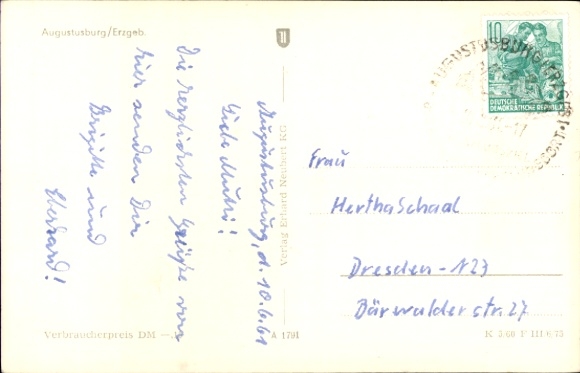 Augustusburg/Erzgeb.
Augustusburg, d. 10.6.61
Liebe Mutti!
Die herzlichsten Grüße von
hier senden Dir
Brigitte und
Eberhard!
Verbraucherpreis DM
Verlag Erhard Neubert KG
A 1791
10
DEUTSCHE
DEMOKRATISCHE REPUBLIK
AUGUSTUSBURG
Frau
Hertha Schaal
Dresden-N23
Bärwalder str. 27
K 3/60 F III/6/73